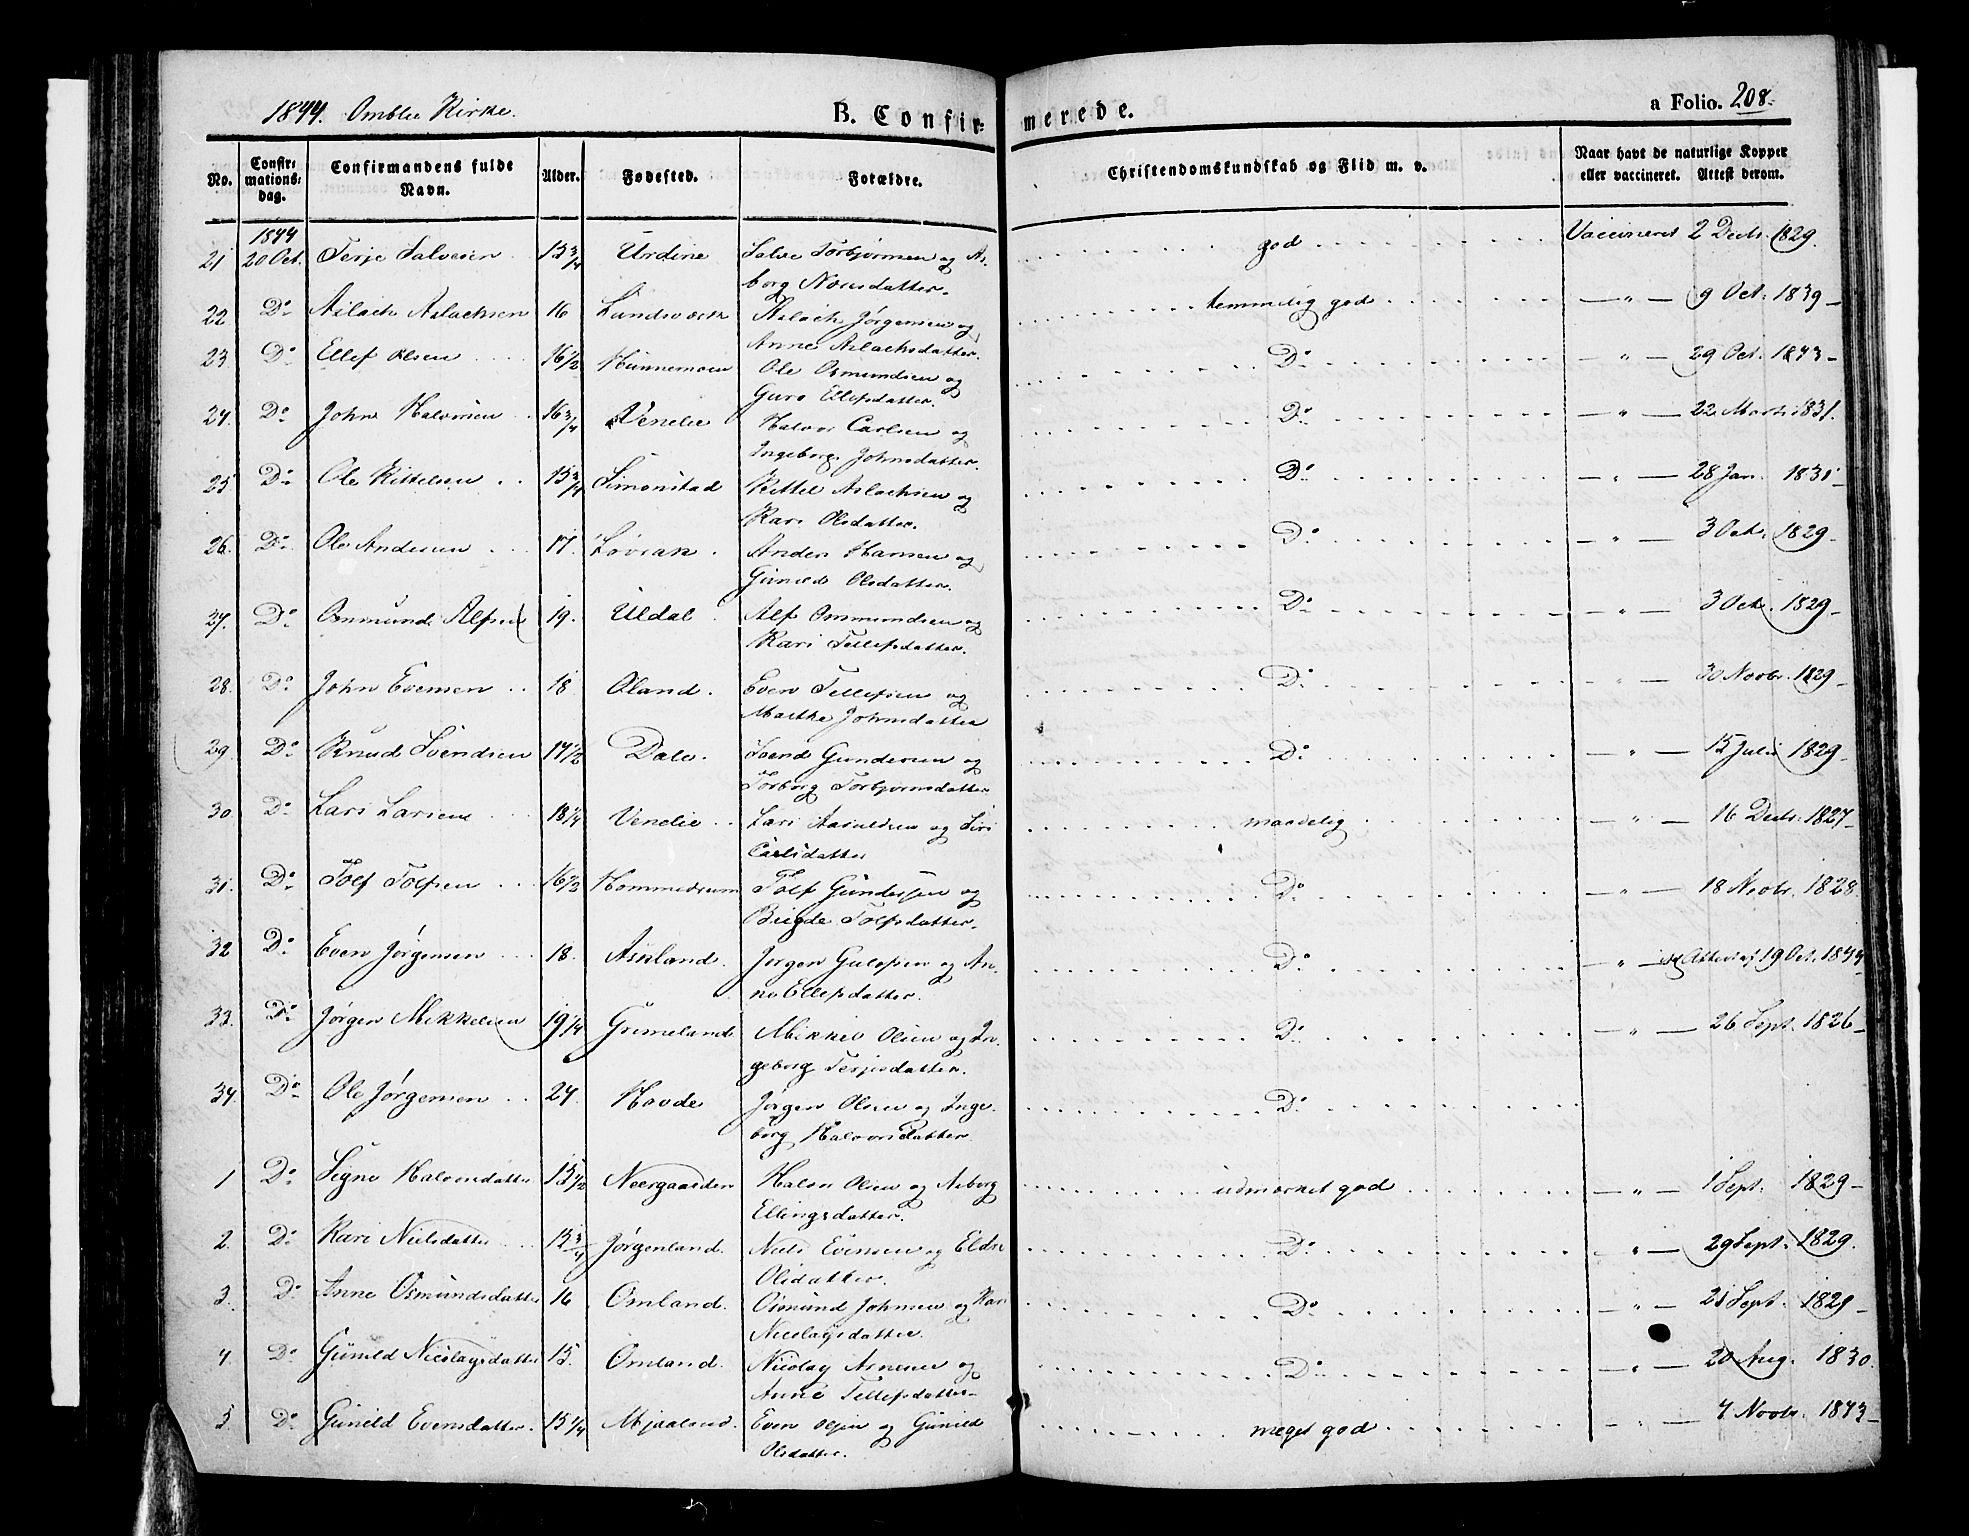 1844. Omblie Kirke.
B. Confirmerede.
a Folio. 208.
No. Confirmationsdag. Confirmandens fulde Navn. Alder. Fødested. Forældre. Christendomskundskab og Flid m. v. Naar havt de naturlige Kopper eller vaccineret. Attest derom.
1844
21 20 Oct. Terje Salvesen 15 3/4 Urdine Salve Torbjørnsen og As- god Vaccineret 2 Decbr. 1829.
borg Nonsdatter.
22 Do Aslach Aslachsen 16 Landsværk Aslach Jørgensen og temmelig god — " — 9 Oct. 1839
Anne Aslachsdatter.
23. Do Ellef Olsen 16 1/2 Hünnemoen Ole Osmundsen og Do — " — 29 Oct. 1843
Guro Ellefsdatter.
24. Do John Halvorsen 16 3/4 Venelie Halvor Carlsen og Do — " — 22 Marts 1831.
Ingeborg Johnsdatter.
25 Do Ole Kittelsen 15 3/4 Simonstad Kittel Aslachsen og Do — " — 28 Jan. 1831
Kari Olsdatter.
26. Do Ole Andersen 17. Løvrak Anders Hansen og Do — " — 3 Oct. 1829
Gunild Olsdatter.
27. Do Osmund Alfsen 19. Uldal Alf Osmundsen og Do — " — 3 Oct. 1829
Kari Tellefsdatter.
28. Do John Evensen 18 Oland. Even Tellefsen og Do " — 30 Novbr. 1829
Marthe Johnsdatter
29 Do Knud Svendsen 17 1/2 Dale. Svend Gundersen og Do — " — 15 Julii 1829
Torborg Torbjørnsdatter
30 Do Lars Larsen 18 1/4 Venelie Lars Aanuldsen og Siri maadelig — " — 16 Decbr. 1827
Carlsdatter
31. Do Tolf Tolfsen 16 1/2 Hommedrum Tolf Gundersen og Do — " — 18 Novbr. 1828.
Birgde Tolfsdatter.
32 Do Even Jørgensen 18. Assland. Jørgen Gulofsen og An- Do — " — Attest af 19 Oct. 1844
ne Ellefsdatter.
33. Do Jørgen Mikkelsen 19 1/4 Grimeland Mikkel Olsen og In- Do — " — 26 Sept. 1826
geborg Terjesdatter.
34. Do Ole Jørgensen 24. Hovde Jørgen Olsen og Inge- Do
borg Halvorsdatter
1 Do Signe Halvorsdatter 15 1/2 Neergaarden Halvor Olsen og Asborg udmærket god — " — 1 Sept. 1829
Ellingsdatter.
2. Do Kari Nielsdatter 15 3/4 Jørgenland. Niels Evensen og Eldri Do " — 29 Sept. 1829.
Olsdatter.
3. Do Anne Osmundsdatter 16 Omland. Osmund Johnsen og Kari Do — " — 21 Sept. 1829
Nicolaysdatter.
4. Do Gunild Nicolaysdatter 15. Omland. Nicolay Arnesen og Do — " — 20 Aug. 1830.
Anne Tellefsdatter
5. Do Gunild Evensdatter. 15 1/4 Mjaaland. Even Olsen og Gunild meget god " — 4 Novbr. 1843
Olsdatter.